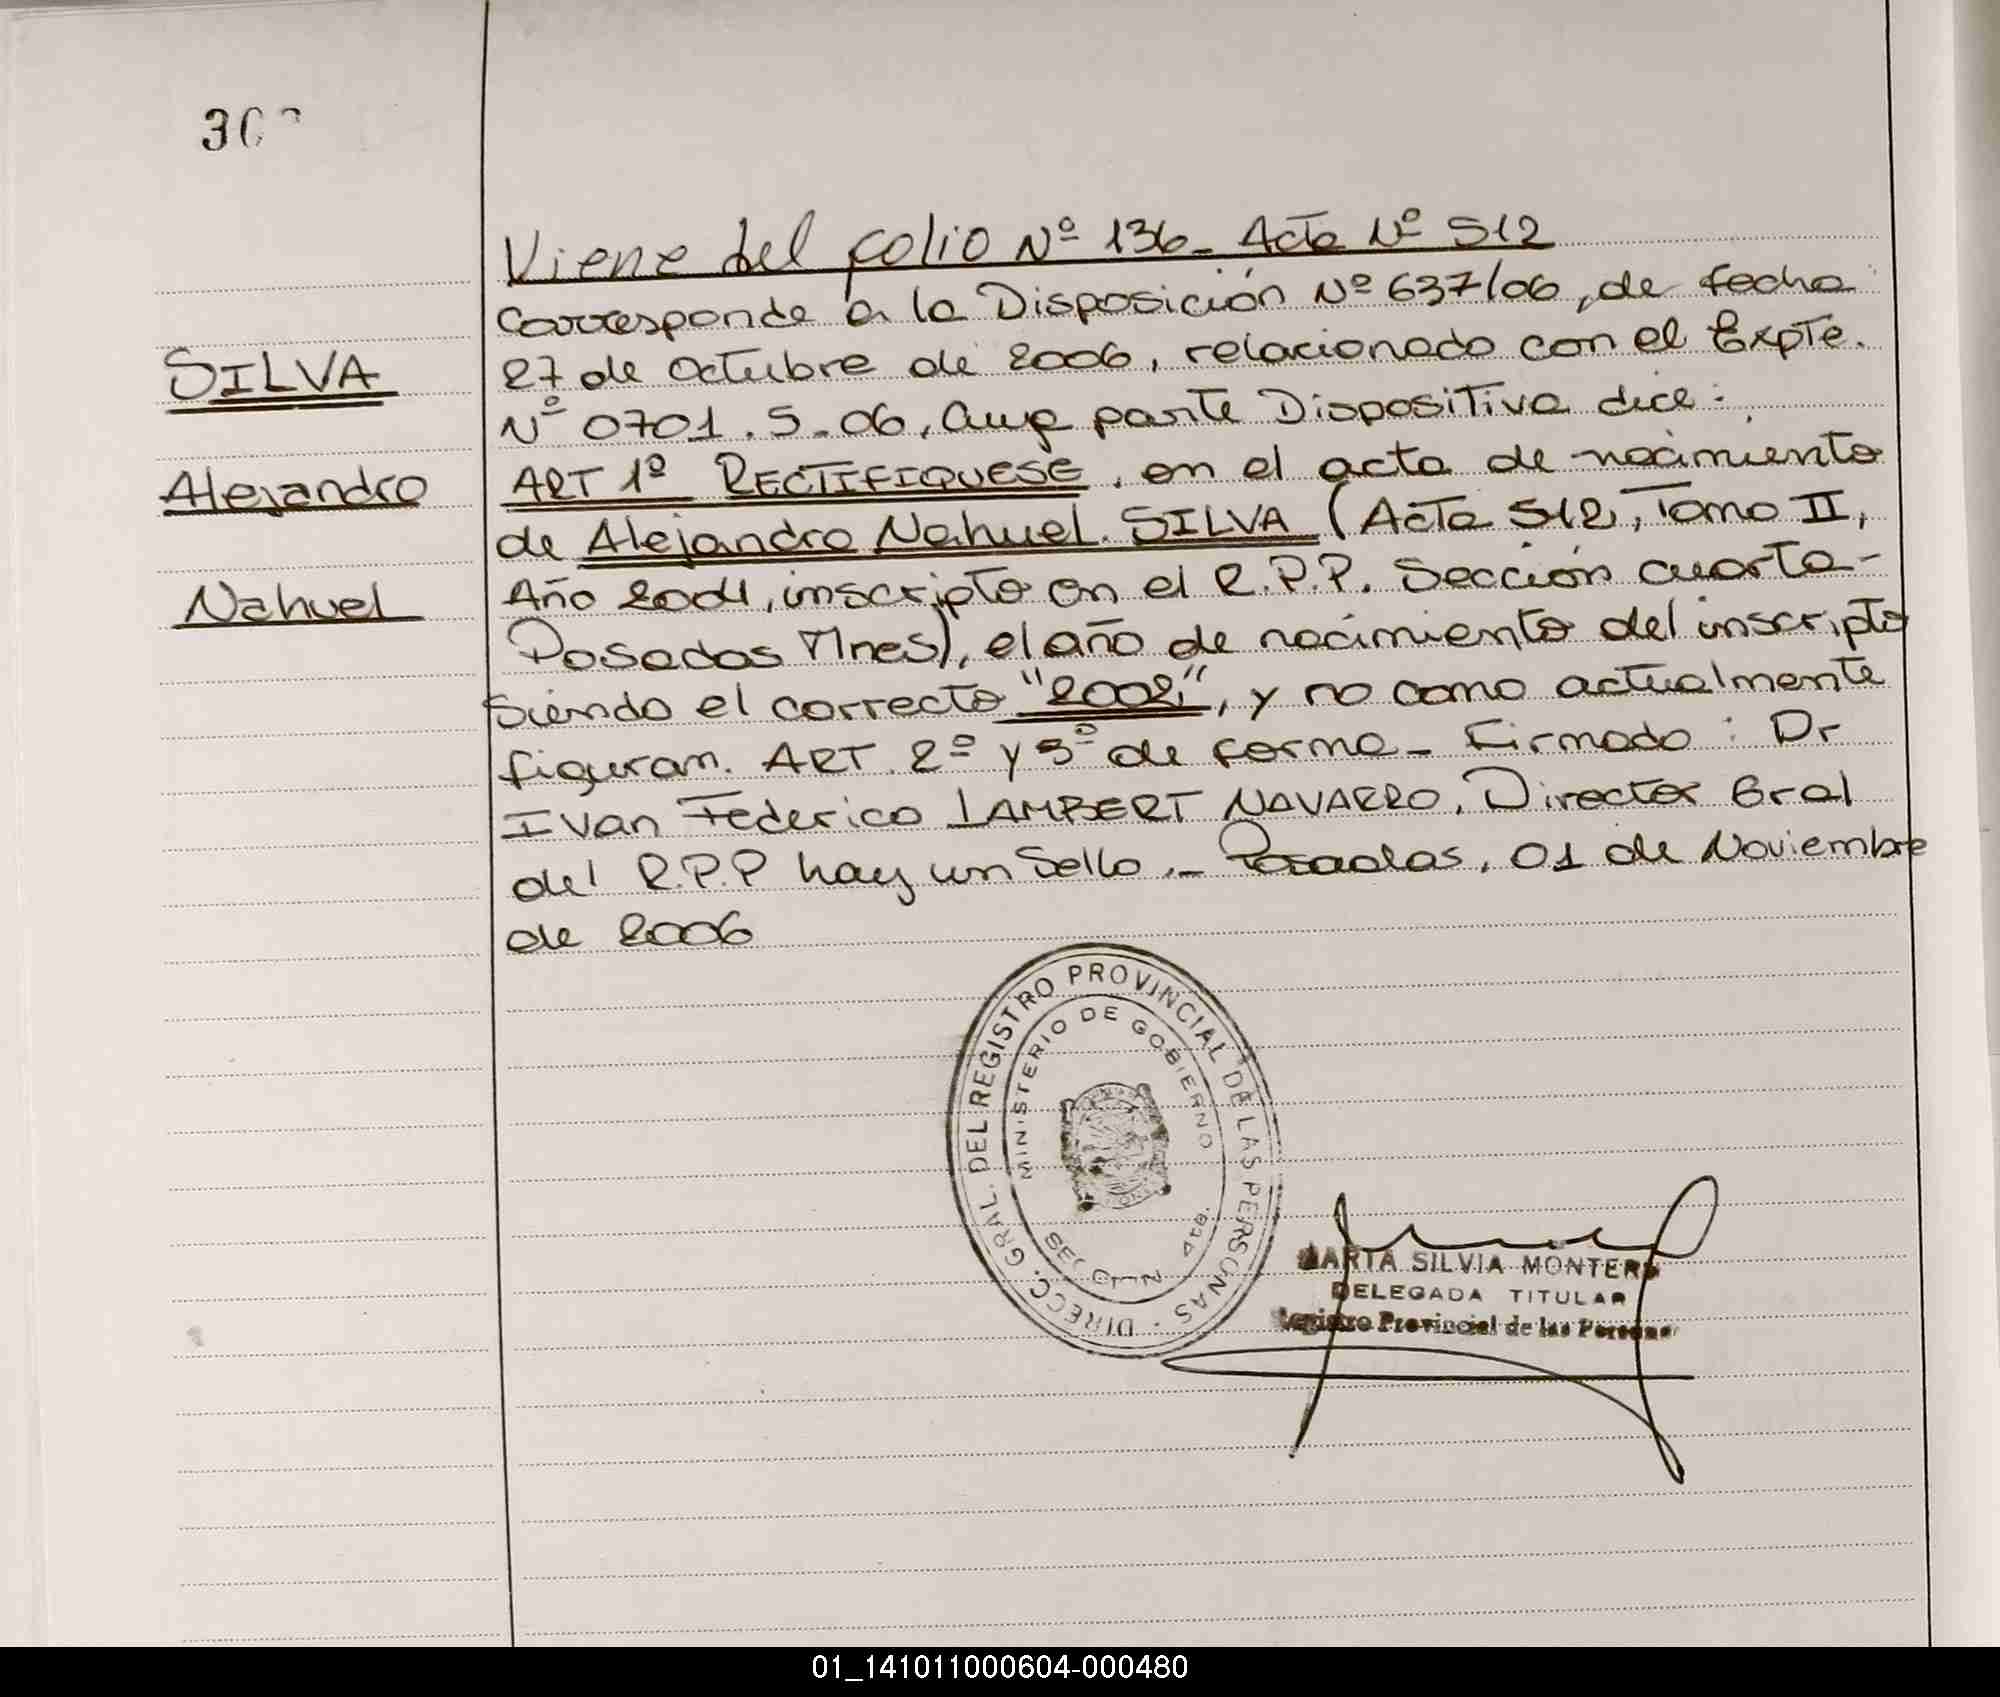 30
Viene del folio Nº 136- Acta Nº 512
Corresponde a la Disposición Nº 637/06, de fecha
SILVA
27 de Octubre de 2006, relacionado con el Expte.
Nº 0701.S-06, Cuya parte Dispositiva dice:
Alejandro
ART 1º RECTIFIQUESE, en el acta de nacimiento
de Alejandro Nahuel SILVA (Acta 512, Tomo II,
Nahuel
Año 2004, inscripto en el R.P.P. Sección cuarta-
Posadas Mnes), el año de nacimiento del inscripto
Siendo el correcto "2002", y no como actualmente
figuran. ART. 2º y 3º de forma- Firmado: Dr
Ivan Federico LAMBERT NAVARRO, Director Gral
del R.P.P hay un Sello.- Posadas, 01 de Noviembre
de 2006
DIRECC. GRAL. DEL REGISTRO PROVINCIAL DE LAS PERSONAS
MINISTERIO DE GOBIERNO
MARTA SILVIA MONTERO
DELEGADA TITULAR
Registro Provincial de las Personas
01_141011000604-000480